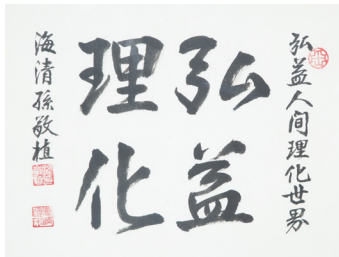 弘益人间理化世界
弘益
理化
海清孫敬植